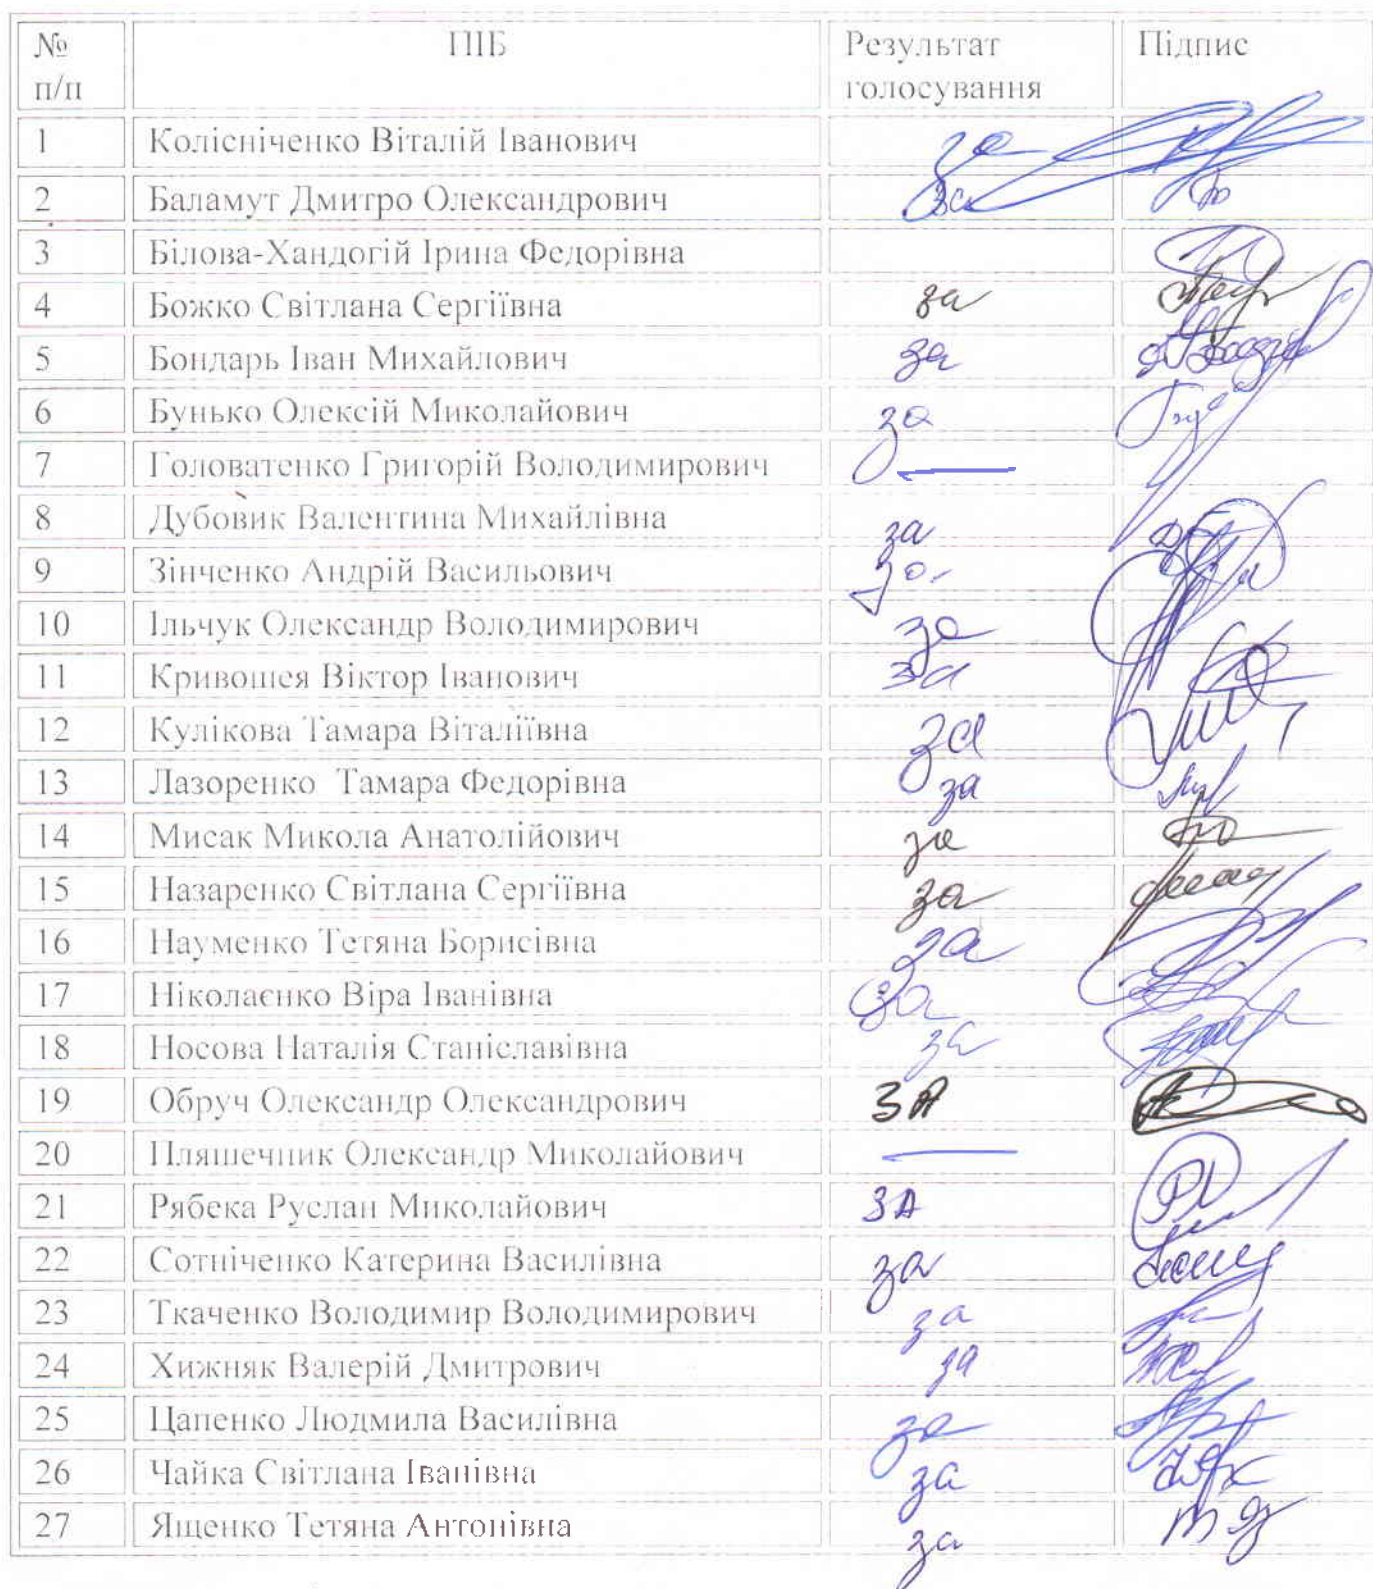 № п/п ПІБ Результат голосування Підпис
1 Колісніченко Віталій Іванович за
2 Баламут Дмитро Олександрович за
3 Білова-Хандогій Ірина Федорівна
4 Божко Світлана Сергіївна за
5 Бондарь Іван Михайлович за
6 Бунько Олексій Миколайович за
7 Головатенко Григорій Володимирович —
8 Дубовик Валентина Михайлівна за
9 Зінченко Андрій Васильович за
10 Ільчук Олександр Володимирович за
11 Кривошея Віктор Іванович за
12 Кулікова Тамара Віталіївна за
13 Лазоренко Тамара Федорівна за
14 Мисак Микола Анатолійович за
15 Назаренко Світлана Сергіївна за
16 Науменко Тетяна Борисівна за
17 Ніколаєнко Віра Іванівна за
18 Носова Наталія Станіславівна за
19 Обруч Олександр Олександрович ЗА
20 Пляшечник Олександр Миколайович —
21 Рябека Руслан Миколайович ЗА
22 Сотніченко Катерина Василівна за
23 Ткаченко Володимир Володимирович за
24 Хижняк Валерій Дмитрович за
25 Цапенко Людмила Василівна за
26 Чайка Світлана Іванівна за
27 Ященко Тетяна Антонівна за